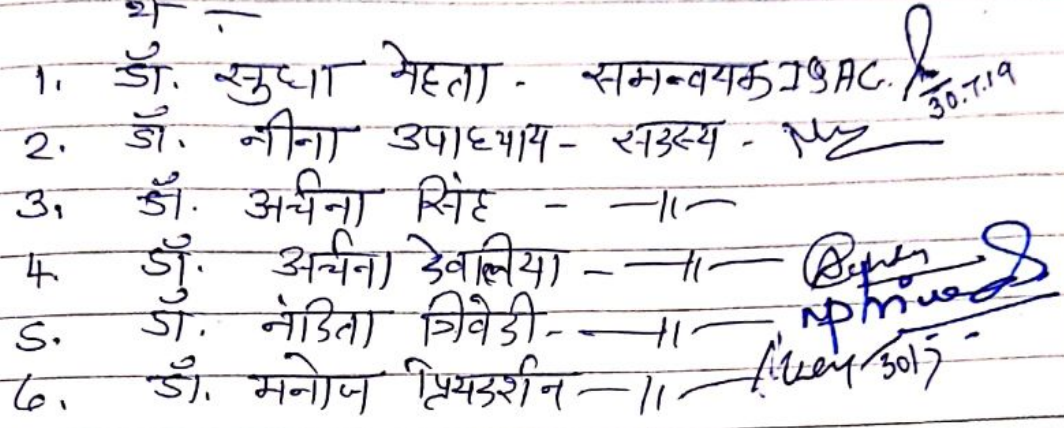 थे :-
1. डॉ. सुधा मेहता - समन्वयक IQAC. 30.7.19
2. डॉ. नीना उपाध्याय - सदस्य -
3. डॉ. अर्चना सिंह - —॥—
4. डॉ. अर्चना देवलिया - —॥—
5. डॉ. नंदिता त्रिवेदी - —॥—
6. डॉ. मनोज प्रियदर्शन —॥—